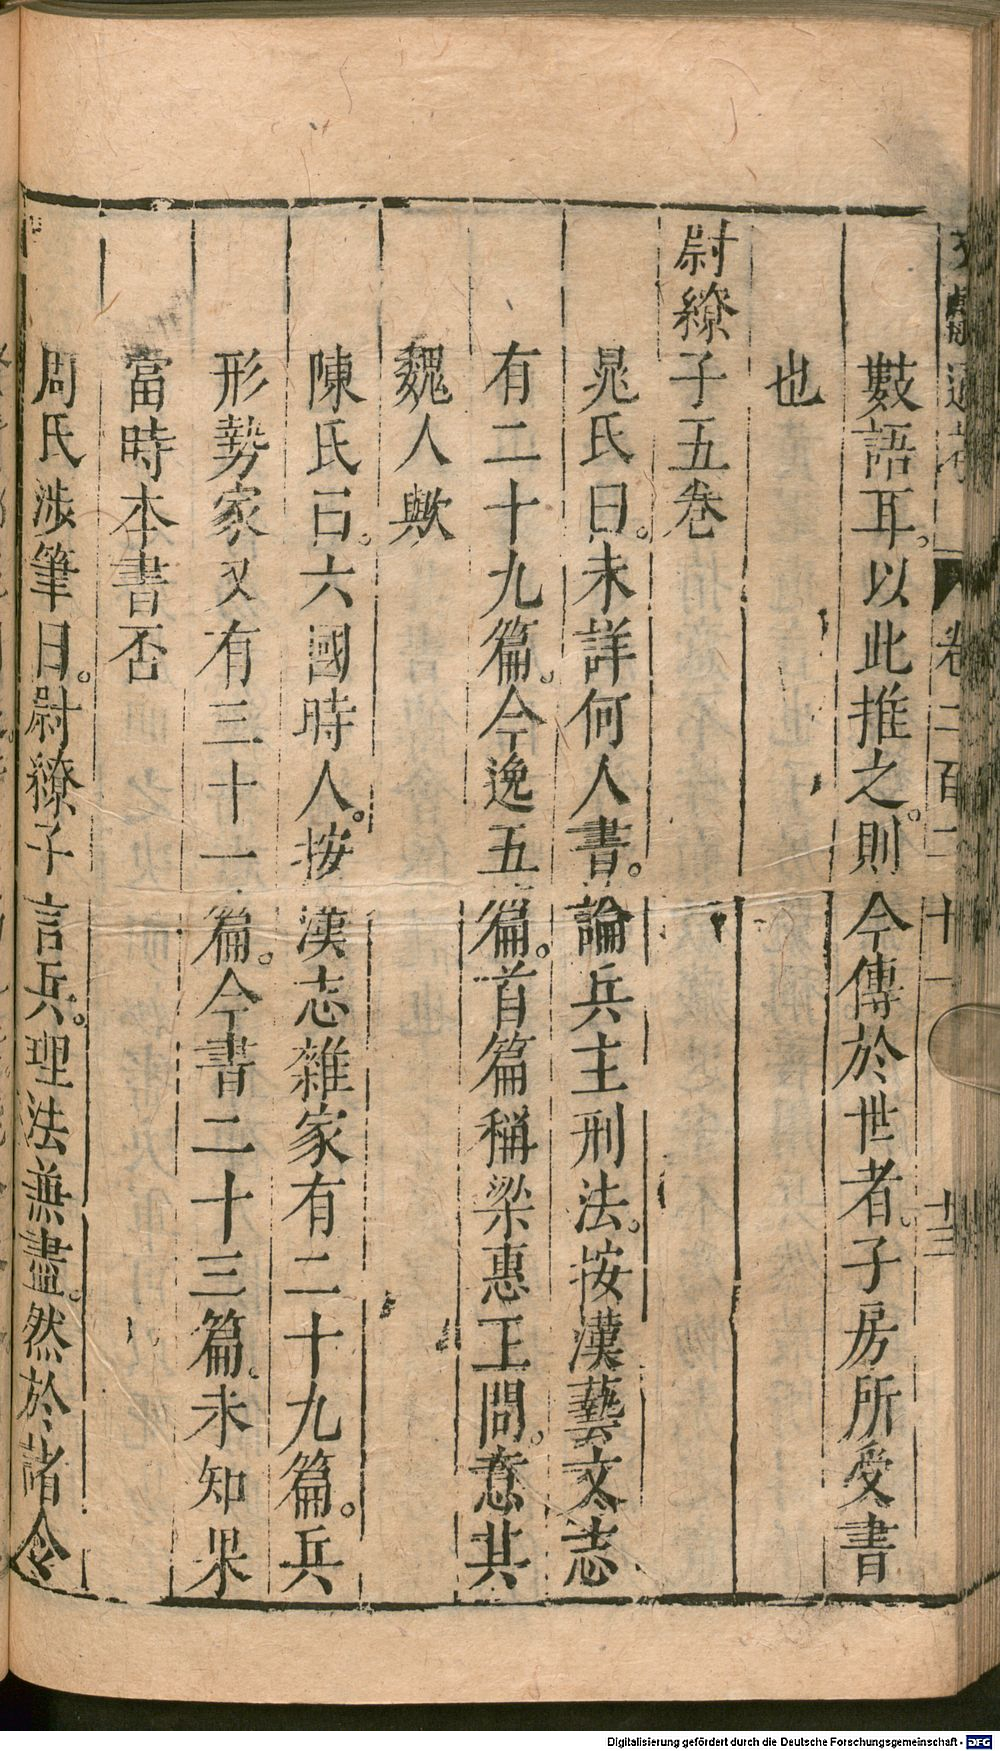 文獻通考 卷二百二十一 十三
數語耳。以此推之。則今傳於世者。子房所受書
也
尉繚子五卷
晁氏曰。未詳何人書。論兵主刑法。按漢藝文志
有二十九篇。今逸五篇。首篇稱梁惠王問。意其
魏人歟
陳氏曰。六國時人。按漢志雜家有二十九篇。兵
形勢家又有三十一篇。今書二十三篇。未知果
當時本書否
周氏涉筆曰。尉繚子言兵。理法兼盡。然於諸令
Digitalisierung gefördert durch die Deutsche Forschungsgemeinschaft - DFG